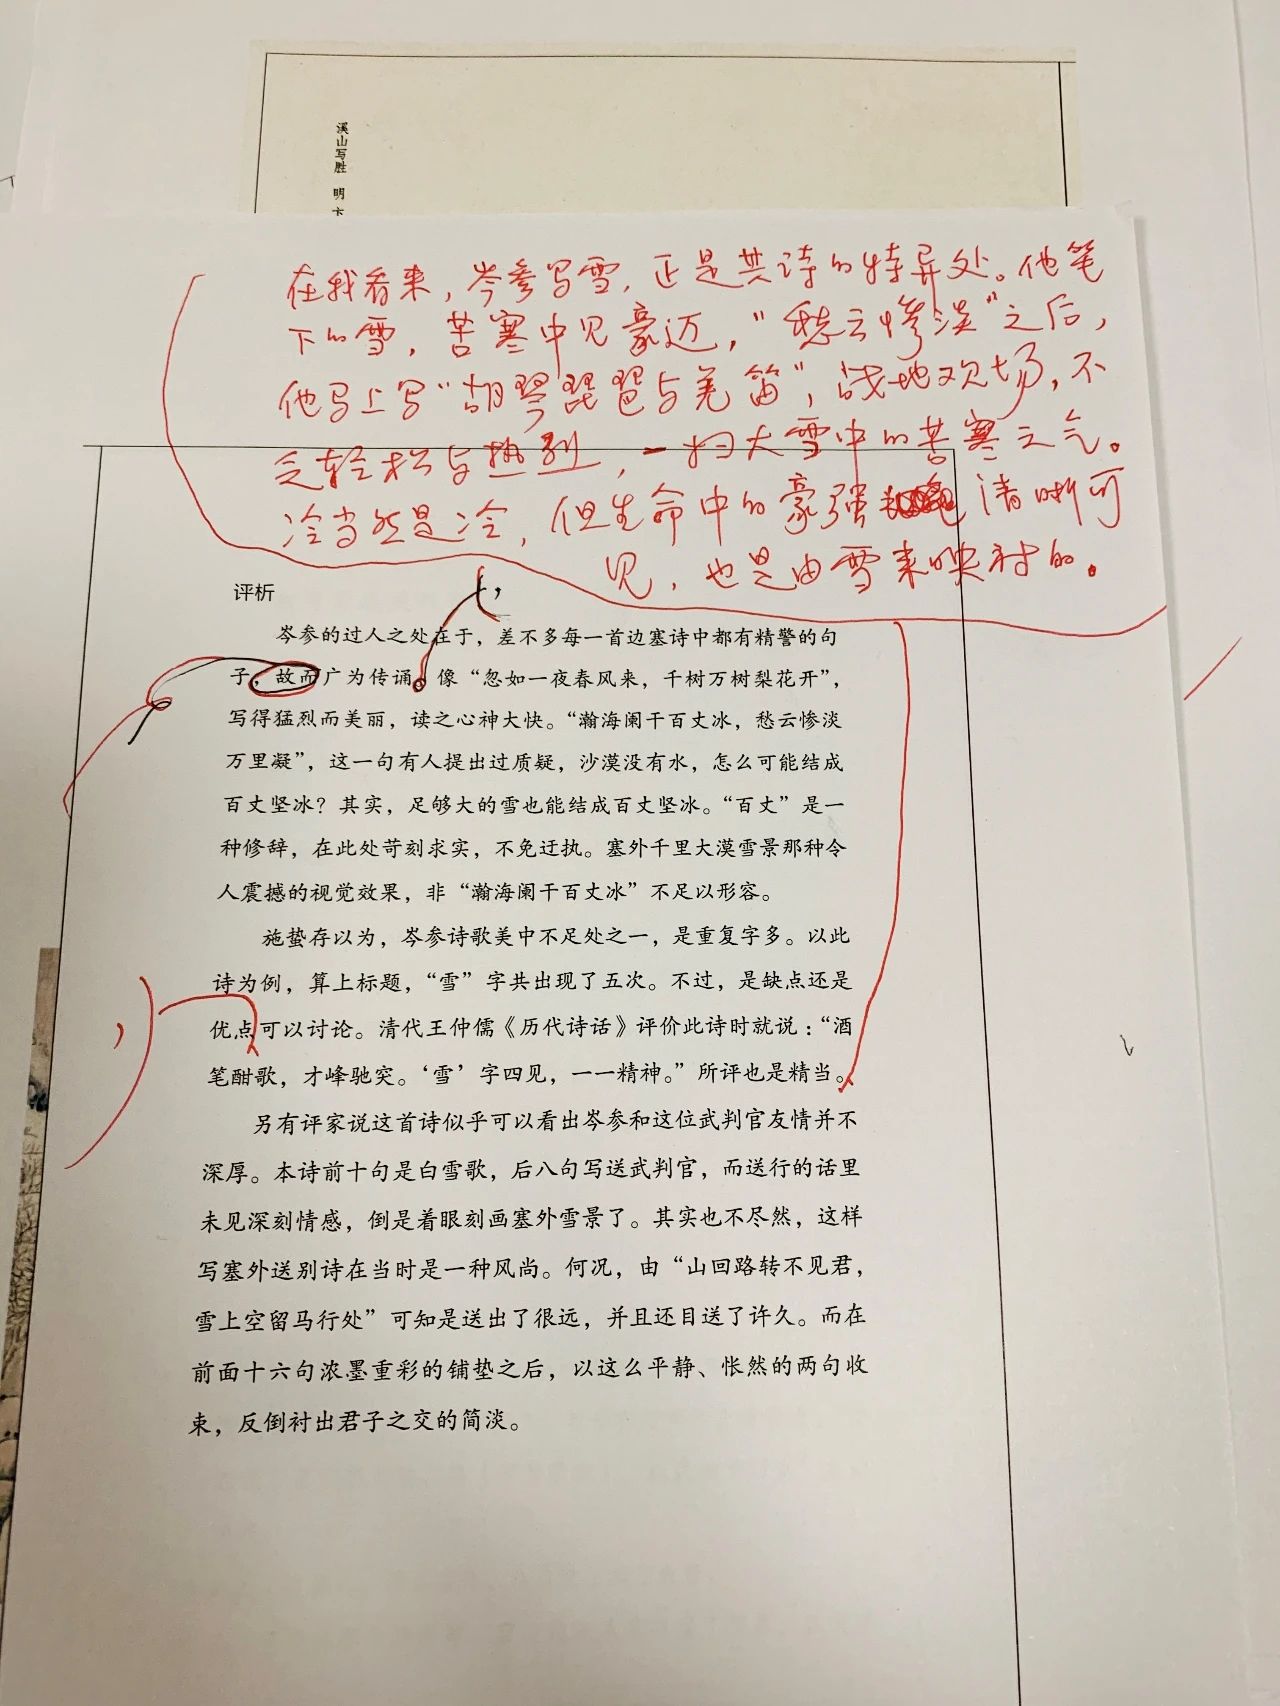 溪山写胜 明 卞
在我看来，岑参写雪，正是其诗的特异处。他笔
下的雪，苦寒中见豪迈，“愁云惨淡”之后，
他马上写“胡琴琵琶与羌笛”，战地欢场，不
乏轻松与热烈，一扫大雪中的苦寒之气。
冷当然是冷，但生命中的豪强 清晰可
见，也是由雪来映衬的。
评析
岑参的过人之处在于，差不多每一首边塞诗中都有精警的句
子，故而广为传诵。像“忽如一夜春风来，千树万树梨花开”，
写得猛烈而美丽，读之心神大快。“瀚海阑干百丈冰，愁云惨淡
万里凝”，这一句有人提出过质疑，沙漠没有水，怎么可能结成
百丈坚冰？其实，足够大的雪也能结成百丈坚冰。“百丈”是一
种修辞，在此处苛刻求实，不免迂执。塞外千里大漠雪景那种令
人震撼的视觉效果，非“瀚海阑干百丈冰”不足以形容。
施蛰存以为，岑参诗歌美中不足处之一，是重复字多。以此
诗为例，算上标题，“雪”字共出现了五次。不过，是缺点还是
优点可以讨论。清代王仲儒《历代诗话》评价此诗时就说：“酒
笔酣歌，才峰驰突。‘雪’字四见，一一精神。”所评也是精当。
另有评家说这首诗似乎可以看出岑参和这位武判官友情并不
深厚。本诗前十句是白雪歌，后八句写送武判官，而送行的话里
未见深刻情感，倒是着眼刻画塞外雪景了。其实也不尽然，这样
写塞外送别诗在当时是一种风尚。何况，由“山回路转不见君，
雪上空留马行处”可知是送出了很远，并且还目送了许久。而在
前面十六句浓墨重彩的铺垫之后，以这么平静、怅然的两句收
束，反倒衬出君子之交的简淡。